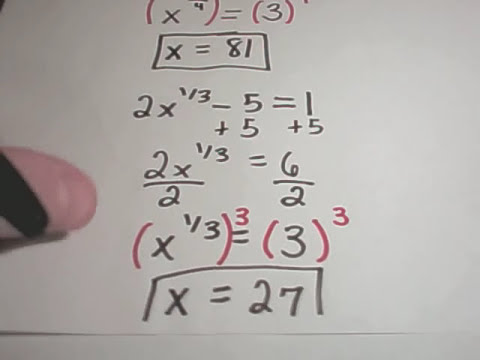 (x^1/4) = (3)
x = 81
2x^1/3 - 5 = 1
+5 +5
2x^1/3 = 6
2 2
(x^1/3)^3 = (3)^3
x = 27